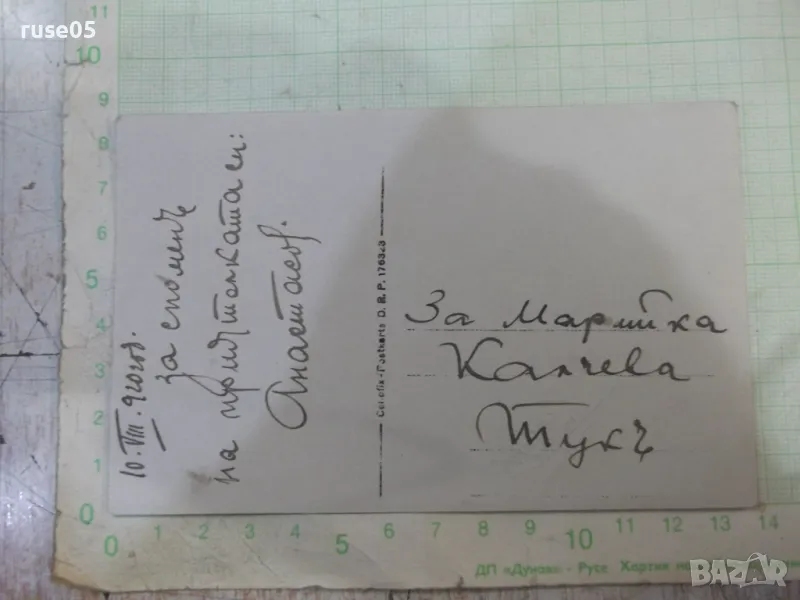 ruse05
10. VIII. 920 год.
за споменъ
на приятелката си:
Анастасов.
Coloria-Postkarte D. R. P. 176323
За Марийка
Калчева
Тукъ
11
10
9
8
7
6
5
4
3
2
1
0
0 1 2 3 4 5 6 7 8 9 10 11 12 13 14
ДП «Дунав» - Русе Хартия
BAZAR